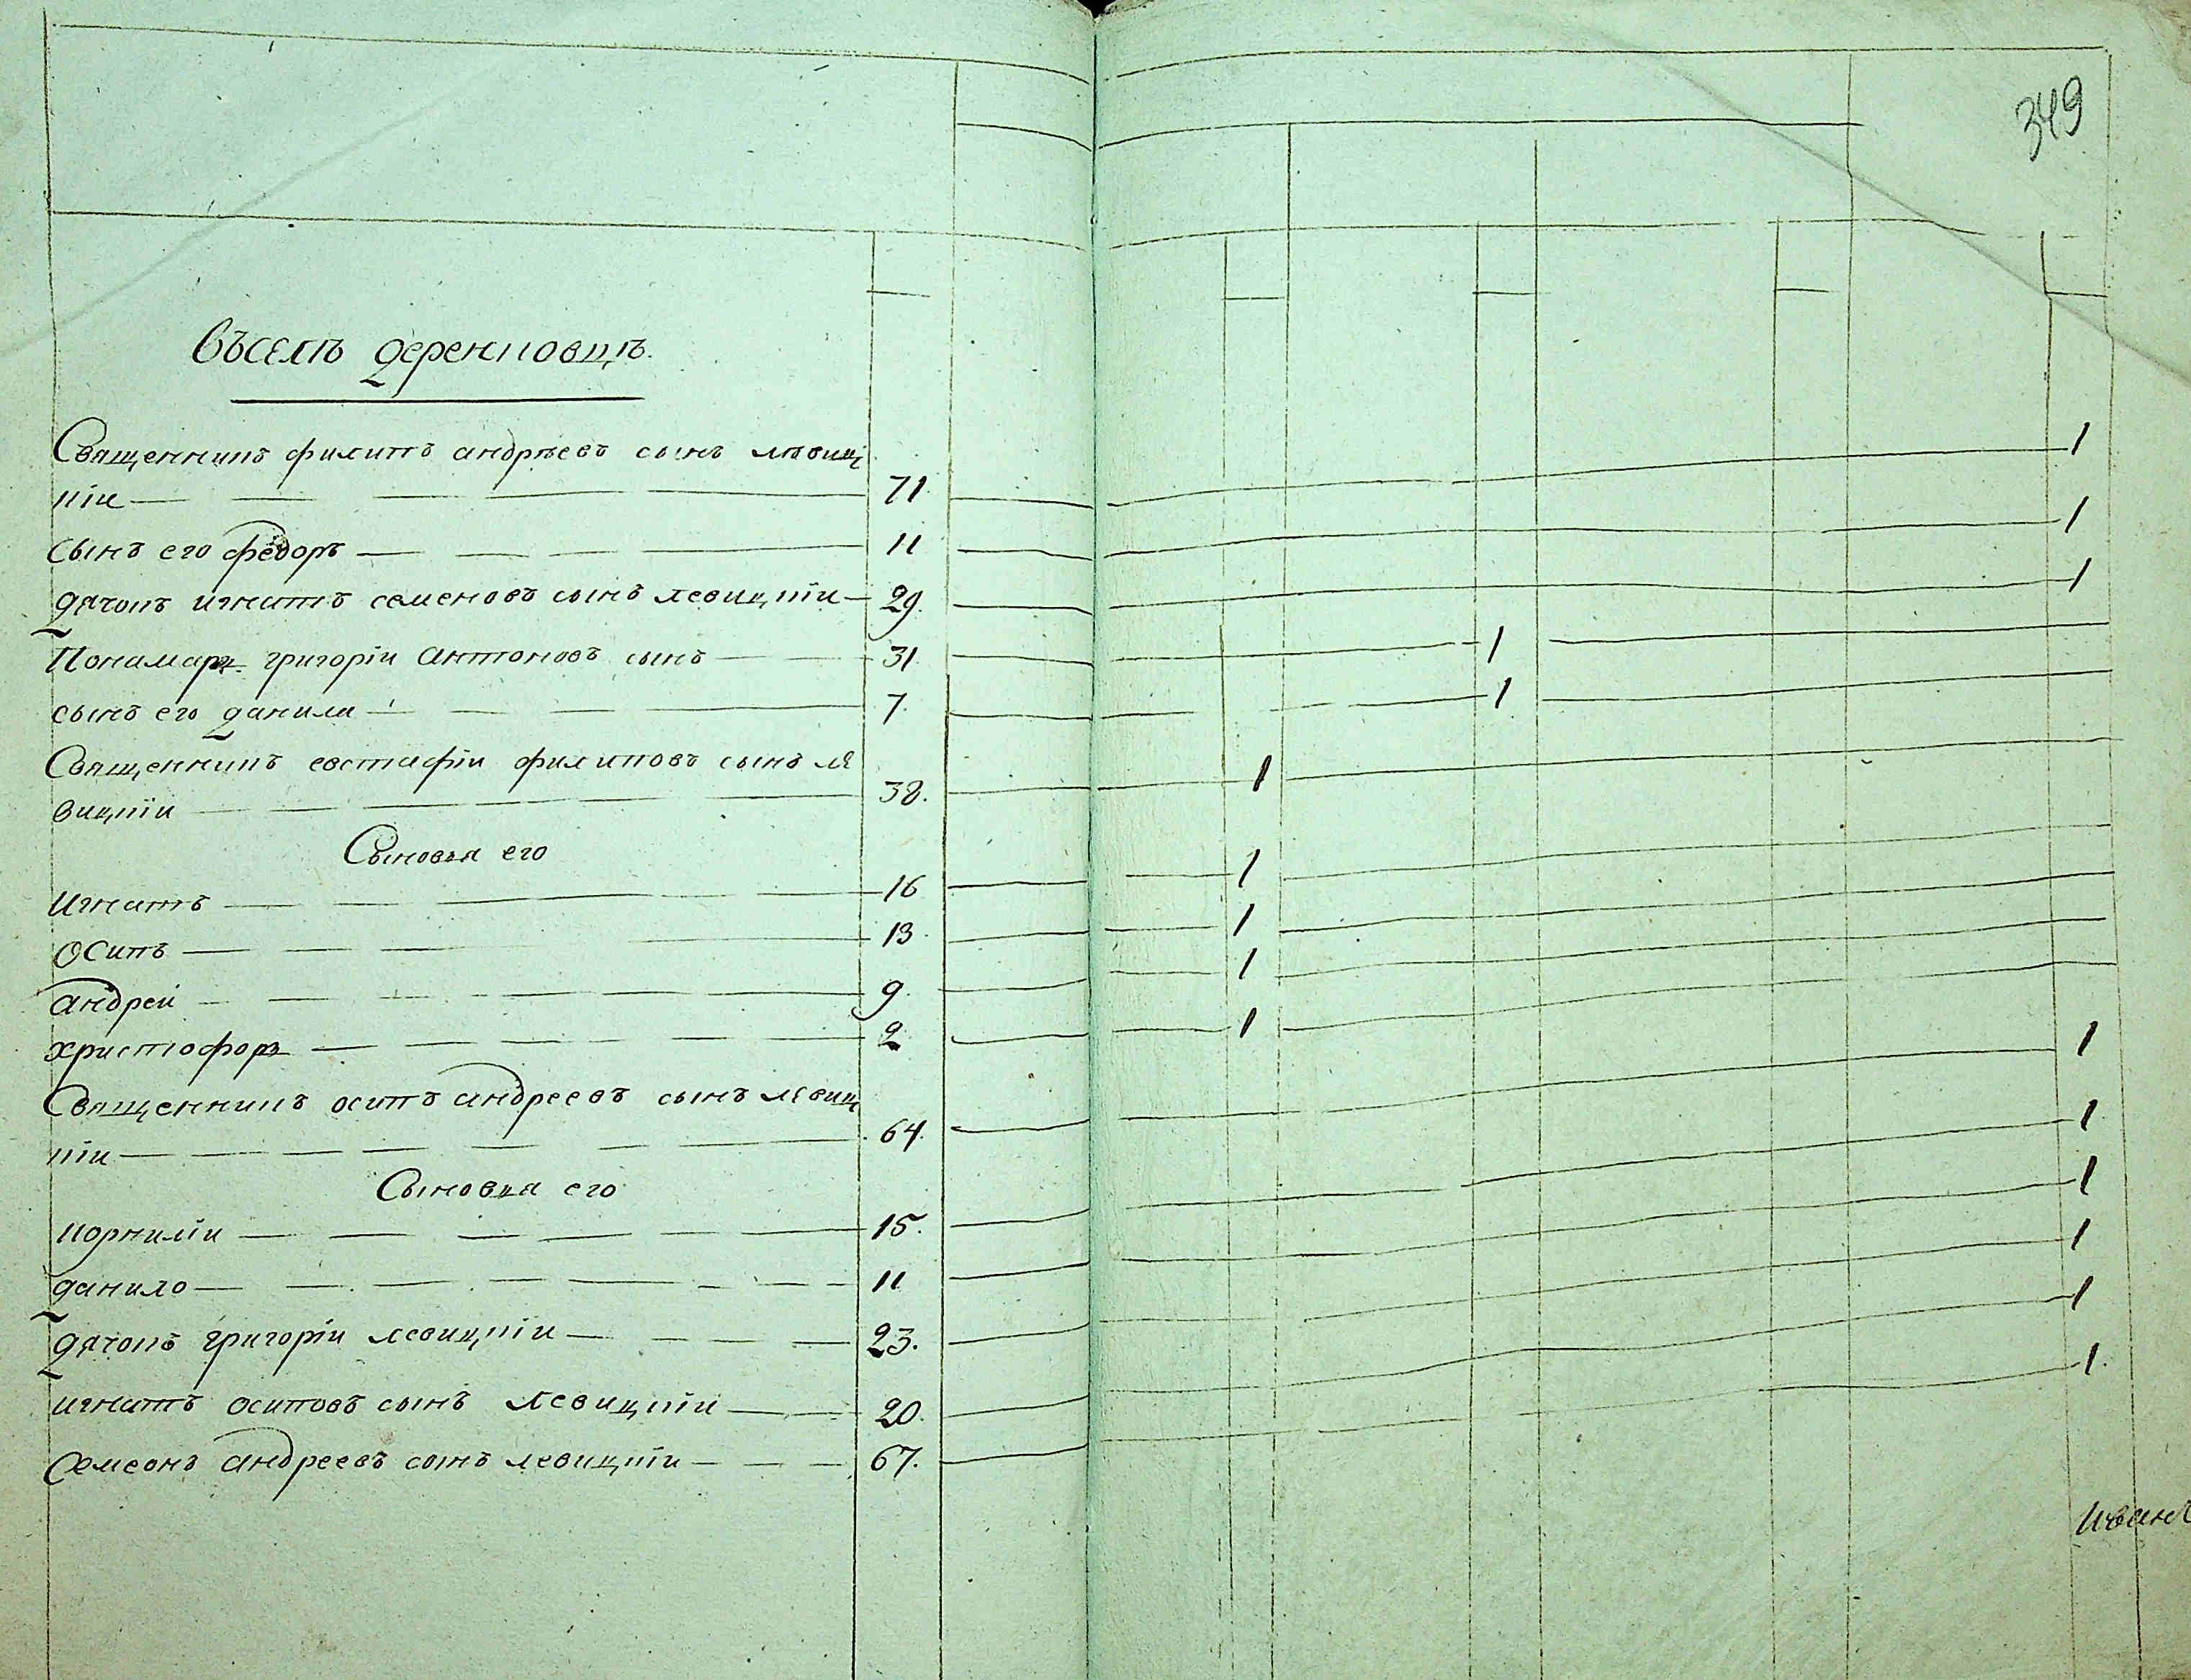 349
Въселѣ деренковцѣ.
Священникъ филипъ андрѣевъ сынъ лѣвиц
кіи 71. 1
сынъ его федоръ 11 1
дячокъ игнатъ семеновъ сынъ левицкіи 29. 1
Понамаръ григоріи антоновъ сынъ 31. 1
сынъ его данила 7. 1
Священникъ евстафіи филиповъ сынъ ле
вицкіи 38. 1
Сыновья его
Игнатъ 16 1
Осипъ 13. 1
андреи 9. 1
христофоръ 2 1
Священникъ осипъ андреевъ сынъ левиц
кіи 64. 1
Сыновья его
корниліи 15. 1
данило 11 1
дячокъ григоріи левицкіи 23. 1
игнатъ осиповъ сынъ левицкіи 20. 1
Семеонъ андреевъ сынъ левицкіи 67. 1.